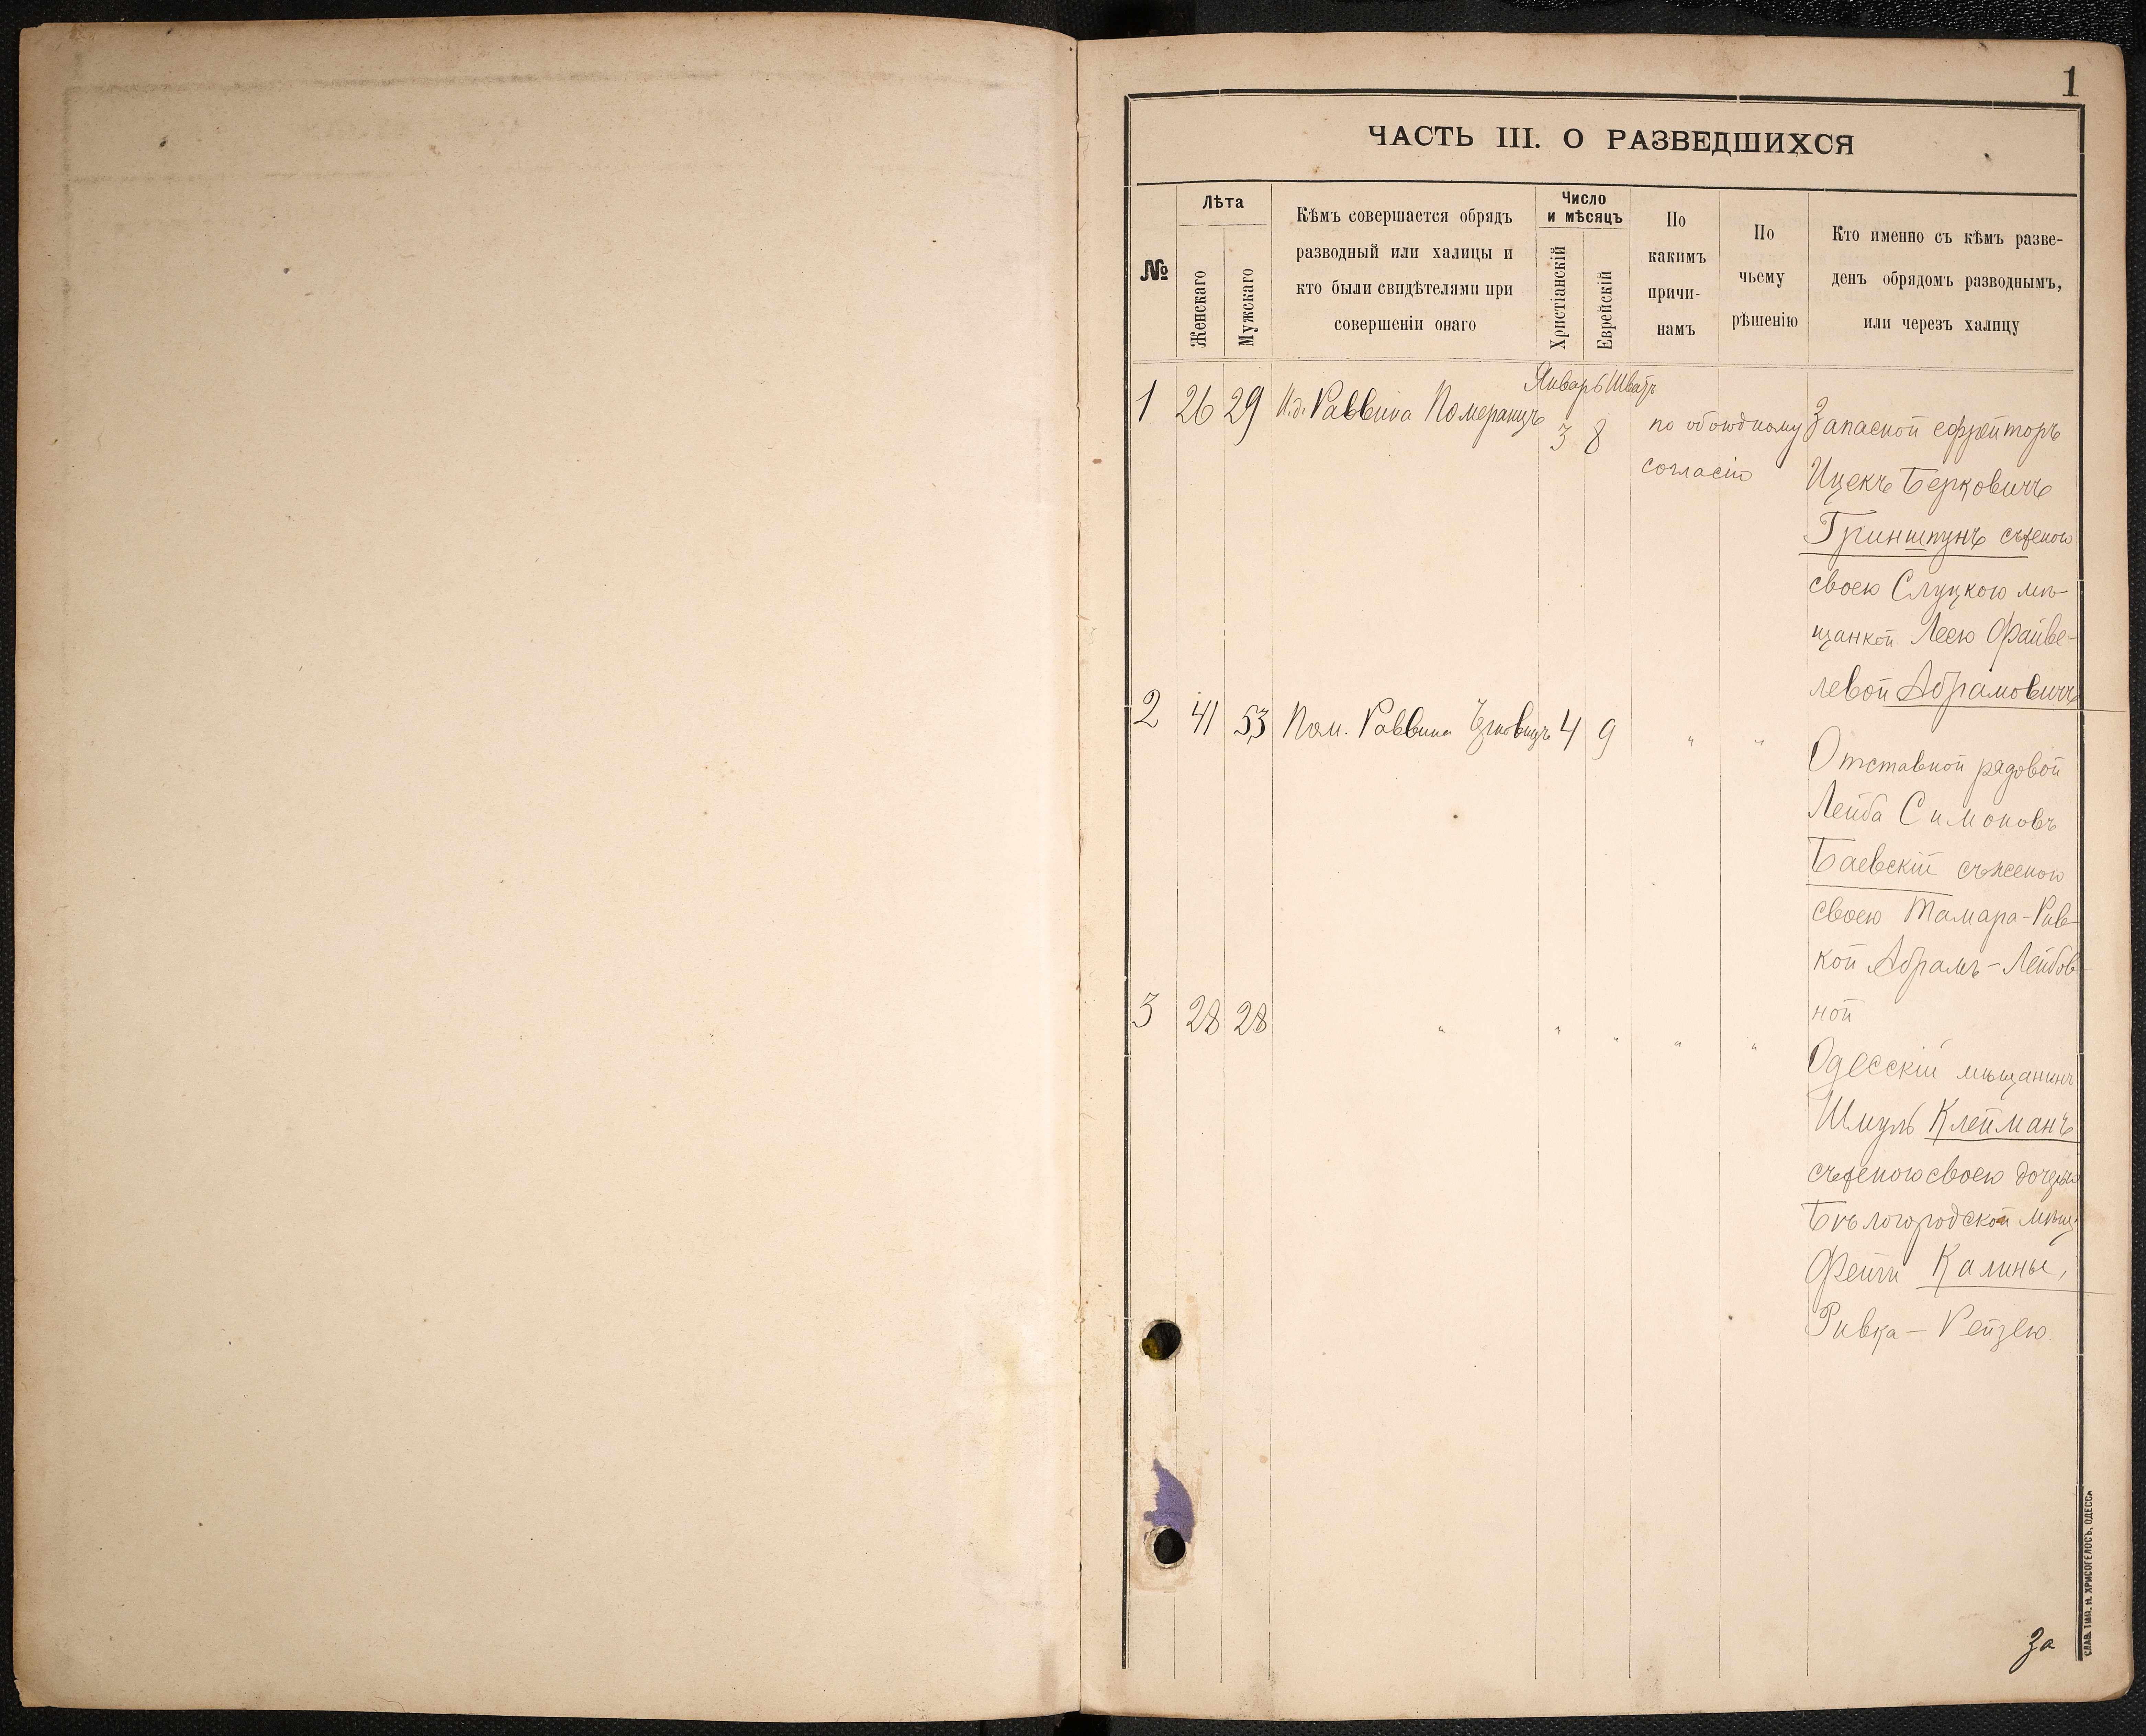 1
ЧАСТЬ III. О РАЗВЕДШИХСЯ
№
Лѣта
Женскаго
Мужскаго
Кѣмъ совершается обрядъ
разводный или халицы и
кто были свидѣтелями при
совершеніи онаго
Число
и мѣсяцъ
Христіанскій
Еврейскій
По
какимъ
причи-
намъ
По
чьему
рѣшенію
Кто именно съ кѣмъ разве-
денъ обрядомъ разводнымъ,
или черезъ халицу
Январь Шватъ
1 26 29 И.д. Раввина Померанцъ 3 8
по обоюдному
согласію
Запасной ефрейторъ
Ицекъ Берковичъ
Гриншпунъ съ женою
своею Слуцкою мѣ-
щанкой Леею Файве-
левой Абрамовичъ
2 41 53 Пом. Раввина 4 9 " "
Отставной рядовой
Лейба Симоновъ
Баевскій съ женою
своею Тамара-Рив-
кой Абрамъ-Лейбов-
ной
3 28 28 " " " " "
Одесскій мѣщанинъ
Шмуль Клейманъ
съ женою своею дочерью
Бѣлогородской мѣщ.
Фейги Калины,
Ривка-Рейзею.
За
СЛАВ. ТИП. Н. ХРИСОГЕЛОСЪ, ОДЕССА